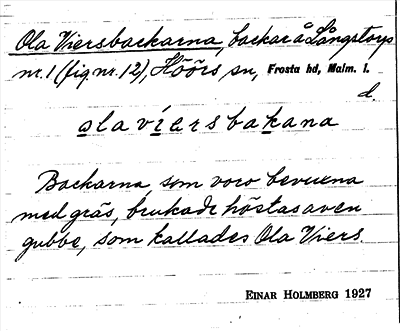 Ola Viersbackarna, backar å Långstorps
nr. 1 (fig nr. 12), Höörs sn, Frosta hd, Malm. l.
d.
olavíersbakana
Backarna, som voro bevuxna
med gräs, brukade höstas av en
gubbe, som kallades Ola Viers.
EINAR HOLMBERG 1927